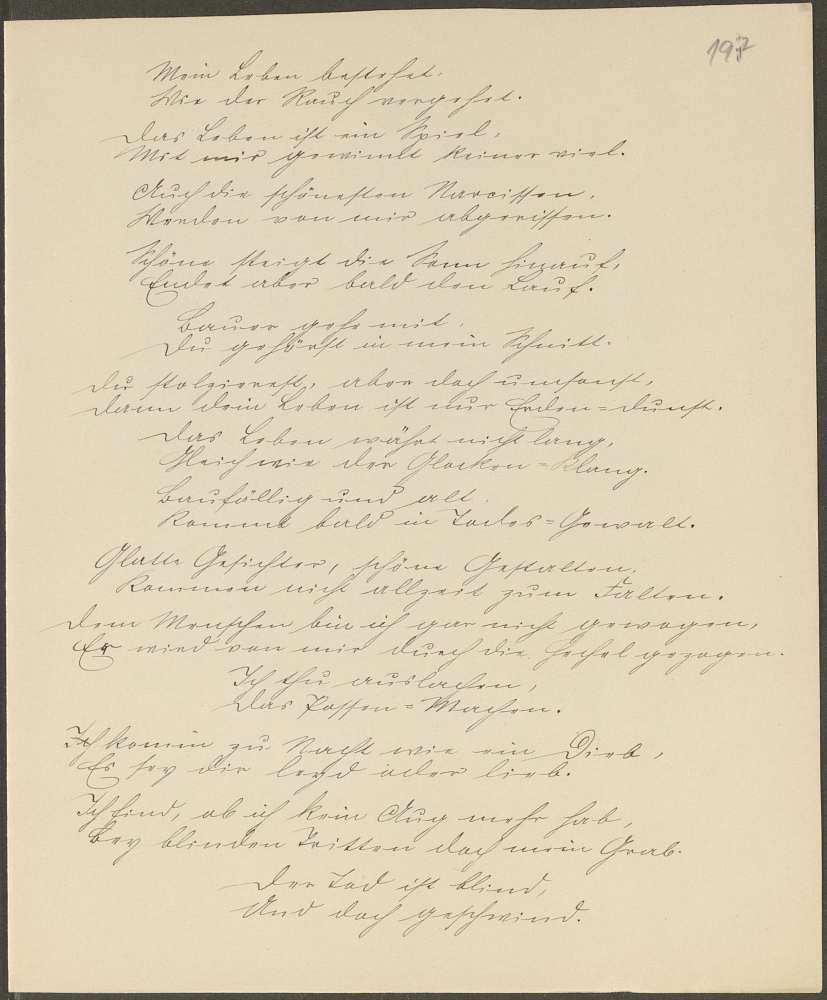 197
Mein Leben bestehet,
Wie der Rauch vergehet.
Das Leben ist ein Spiel,
Mit mir gewinnt keiner viel.
Auch die schönesten Narcissen,
Werden von mir abgerissen.
Schöne steigt die Sonn hinauf,
Endet aber bald den Lauf.
Bauer gehe mit,
Du gehörst in mein Schnitt.
Du stolzierest, aber doch umsonst,
Dann dein Leben ist nur Erden=Dunst.
Das Leben währt nicht lang,
Gleich wie der Glocken=Klang.
Baufällig und alt,
Kommt bald in Todes=Gewalt.
Glatte Gesichter, schöne Gestalten,
Kommen nicht allzeit zum Falten.
Dem Menschen bin ich gar nicht gewogen,
Er wird von mir durch die Hechel gezogen.
Ich thu auslachen,
Das Possen=Machen.
Ich komm zu Nacht wie ein Dieb,
Es sey dir leyd oder lieb.
Ich find, ob ich kein Aug mehr hab,
Bey blinden Tritten doch mein Grab.
Der Tod ist blind,
Und doch geschwind.